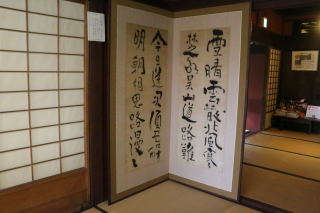 雪晴雲散北風寒
楚水吳山道路難
今日送君須盡醉
明朝相思路漫々